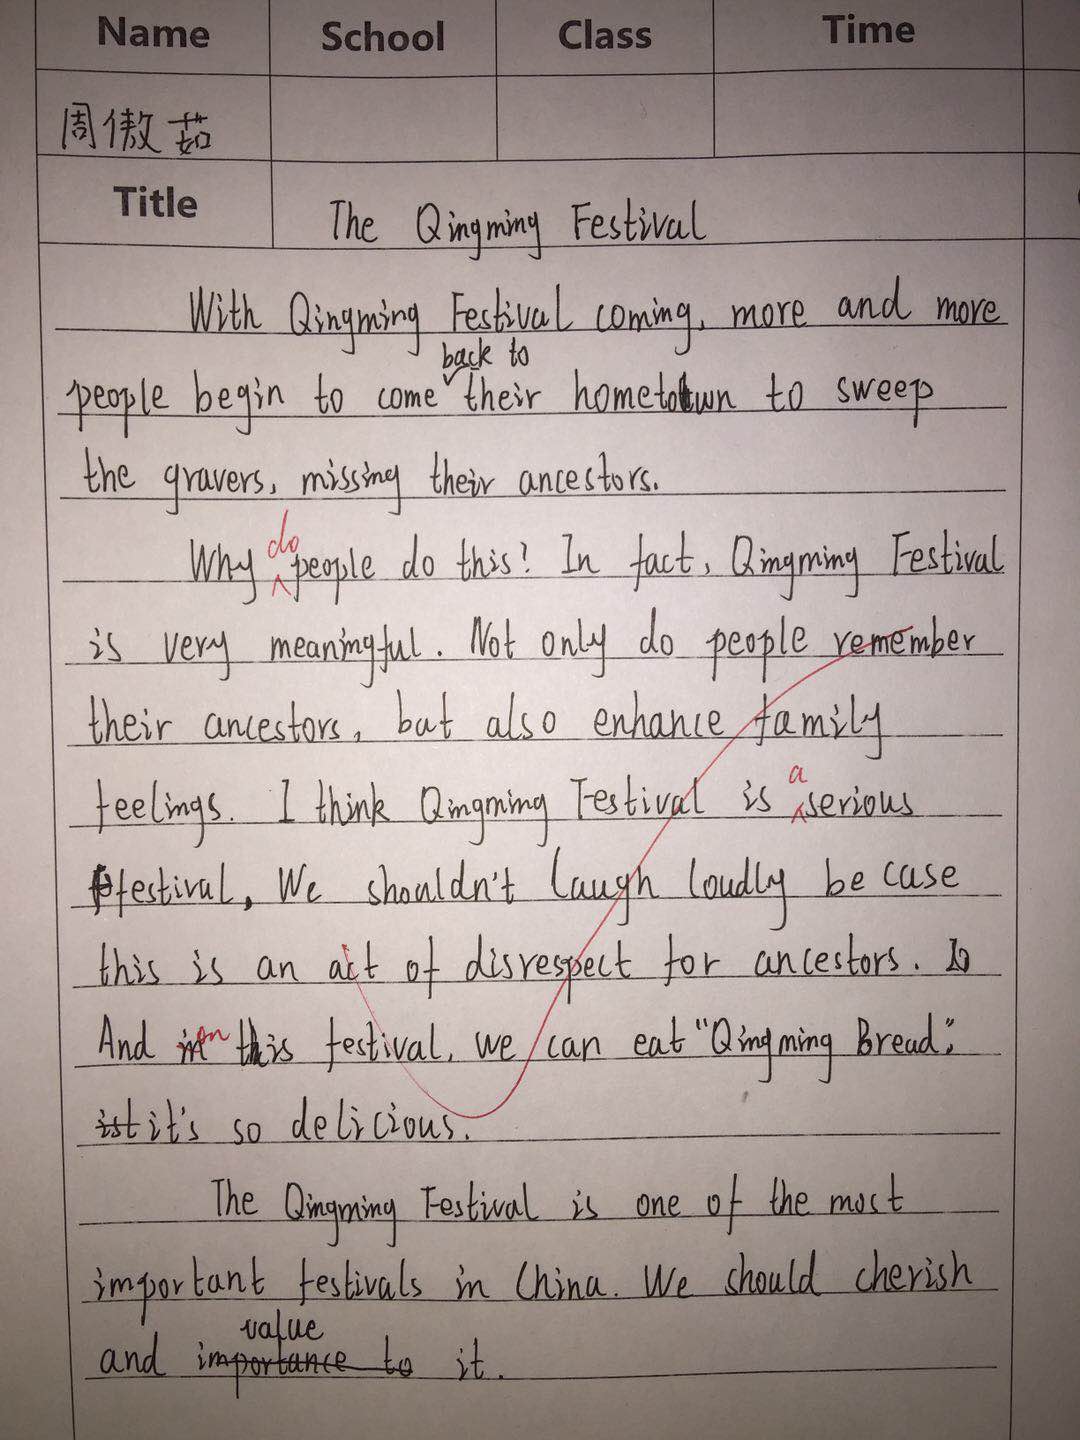 Name School Class Time
周傲茹
Title The Qingming Festival
With Qingming Festival coming, more and more
back to
people begin to come their hometown to sweep
the gravers, missing their ancestors.
do
Why people do this? In fact, Qingming Festival
is very meaningful. Not only do people remember
their ancestors, but also enhance family
a
feelings. I think Qingming Festival is serious
festival, We shouldn't laugh loudly be case
this is an act of disrespect for ancestors.
on
And in this festival, we can eat "Qingming Bread",
ist it's so delicious.
The Qingming Festival is one of the most
important festivals in China. We should cherish
value
and importance to it.